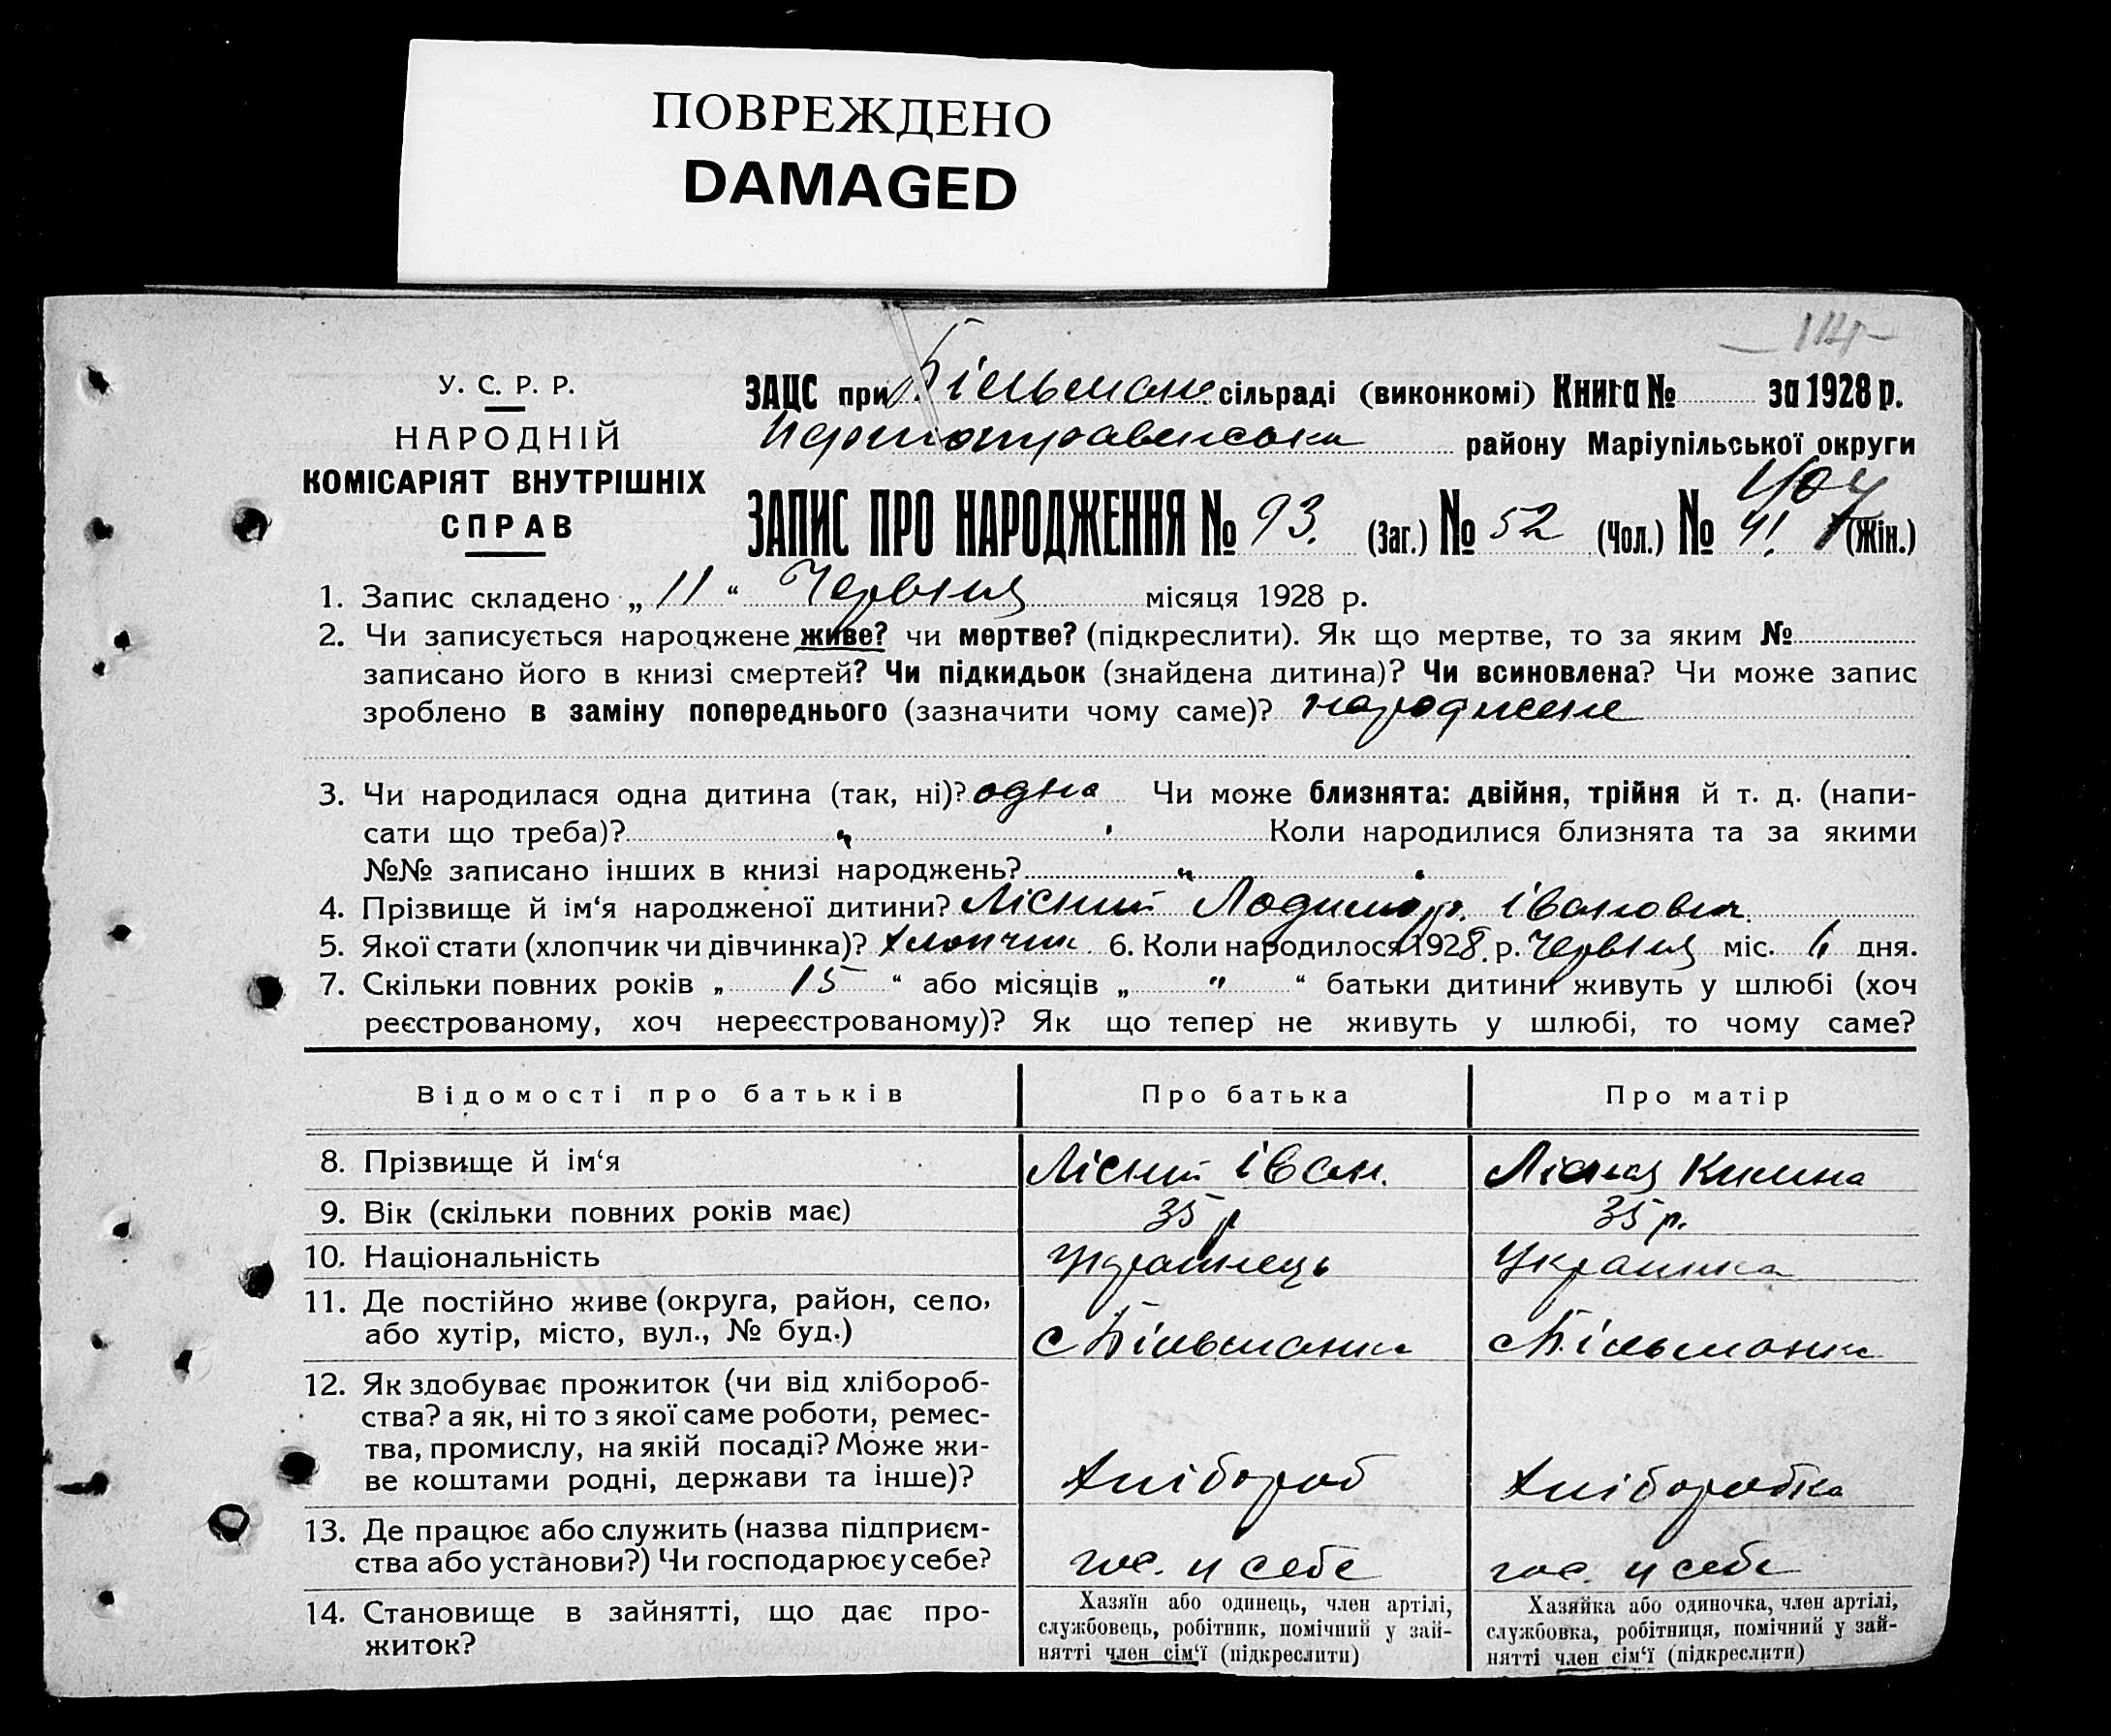 ПОВРЕЖДЕНО
DAMAGED
114
У. С. Р. Р.
НАРОДНІЙ
КОМІСАРІЯТ ВНУТРІШНІХ
СПРАВ
ЗАЦС при Більман. сільраді (виконкомі) Книга № за 1928 р.
Першотравенська району Маріупільської округи
ЗАПИС ПРО НАРОДЖЕННЯ № 93. (Заг.) № 52 (Чол.) № 41. (Жін.)
1. Запис складено „ 11 “ Червня місяця 1928 р.
2. Чи записується народжене живе? чи мертве? (підкреслити). Як що мертве, то за яким №
записано його в книзі смертей? Чи підкидьок (знайдена дитина)? Чи всиновлена? Чи може запис
зроблено в заміну попереднього (зазначити чому саме)? народжене
3. Чи народилася одна дитина (так, ні)? одна Чи може близнята: двійня, трійня й т. д. (напи-
сати що треба)? „ Коли народилися близнята та за якими
№№ записано інших в книзі народжень? „
4. Прізвище й ім‘я народженої дитини? Лісний Лодимир. Іванович
5. Якої стати (хлопчик чи дівчинка)? хлопчик 6. Коли народилося 1928. р. Червня міс. 6 дня.
7. Скільки повних років „ 15 “ або місяців „ " “ батьки дитини живуть у шлюбі (хоч
реєстрованому, хоч нереєстрованому)? Як що тепер не живуть у шлюбі, то чому саме?
Відомості про батьків Про батька Про матір
8. Прізвище й ім‘я Лісний Іван. Лісная Килина
9. Вік (скільки повних років має) 35 р 35 р.
10. Національність Українець Українка
11. Де постійно живе (округа, район, село,
або хутір, місто, вул., № буд.) с Більманка с Більманка
12. Як здобуває прожиток (чи від хлібороб-
ства? а як, ні то з якої саме роботи, ремес-
тва, промислу, на якій посаді? Може жи-
ве коштами родні, держави та інше)? хлібороб хліборобка
13. Де працює або служить (назва підприєм-
ства або установи?) Чи господарює у себе? гос. у себе гос. у себе
14. Становище в зайнятті, що дає про-
житок?
Хазяїн або одинець, член артілі,
службовець, робітник, помічний у зай-
нятті член сім‘ї (підкреслити)
Хазяйка або одиночка, член артілі,
службовка, робітниця, помічний у зай-
нятті член сім‘ї (підкреслити)